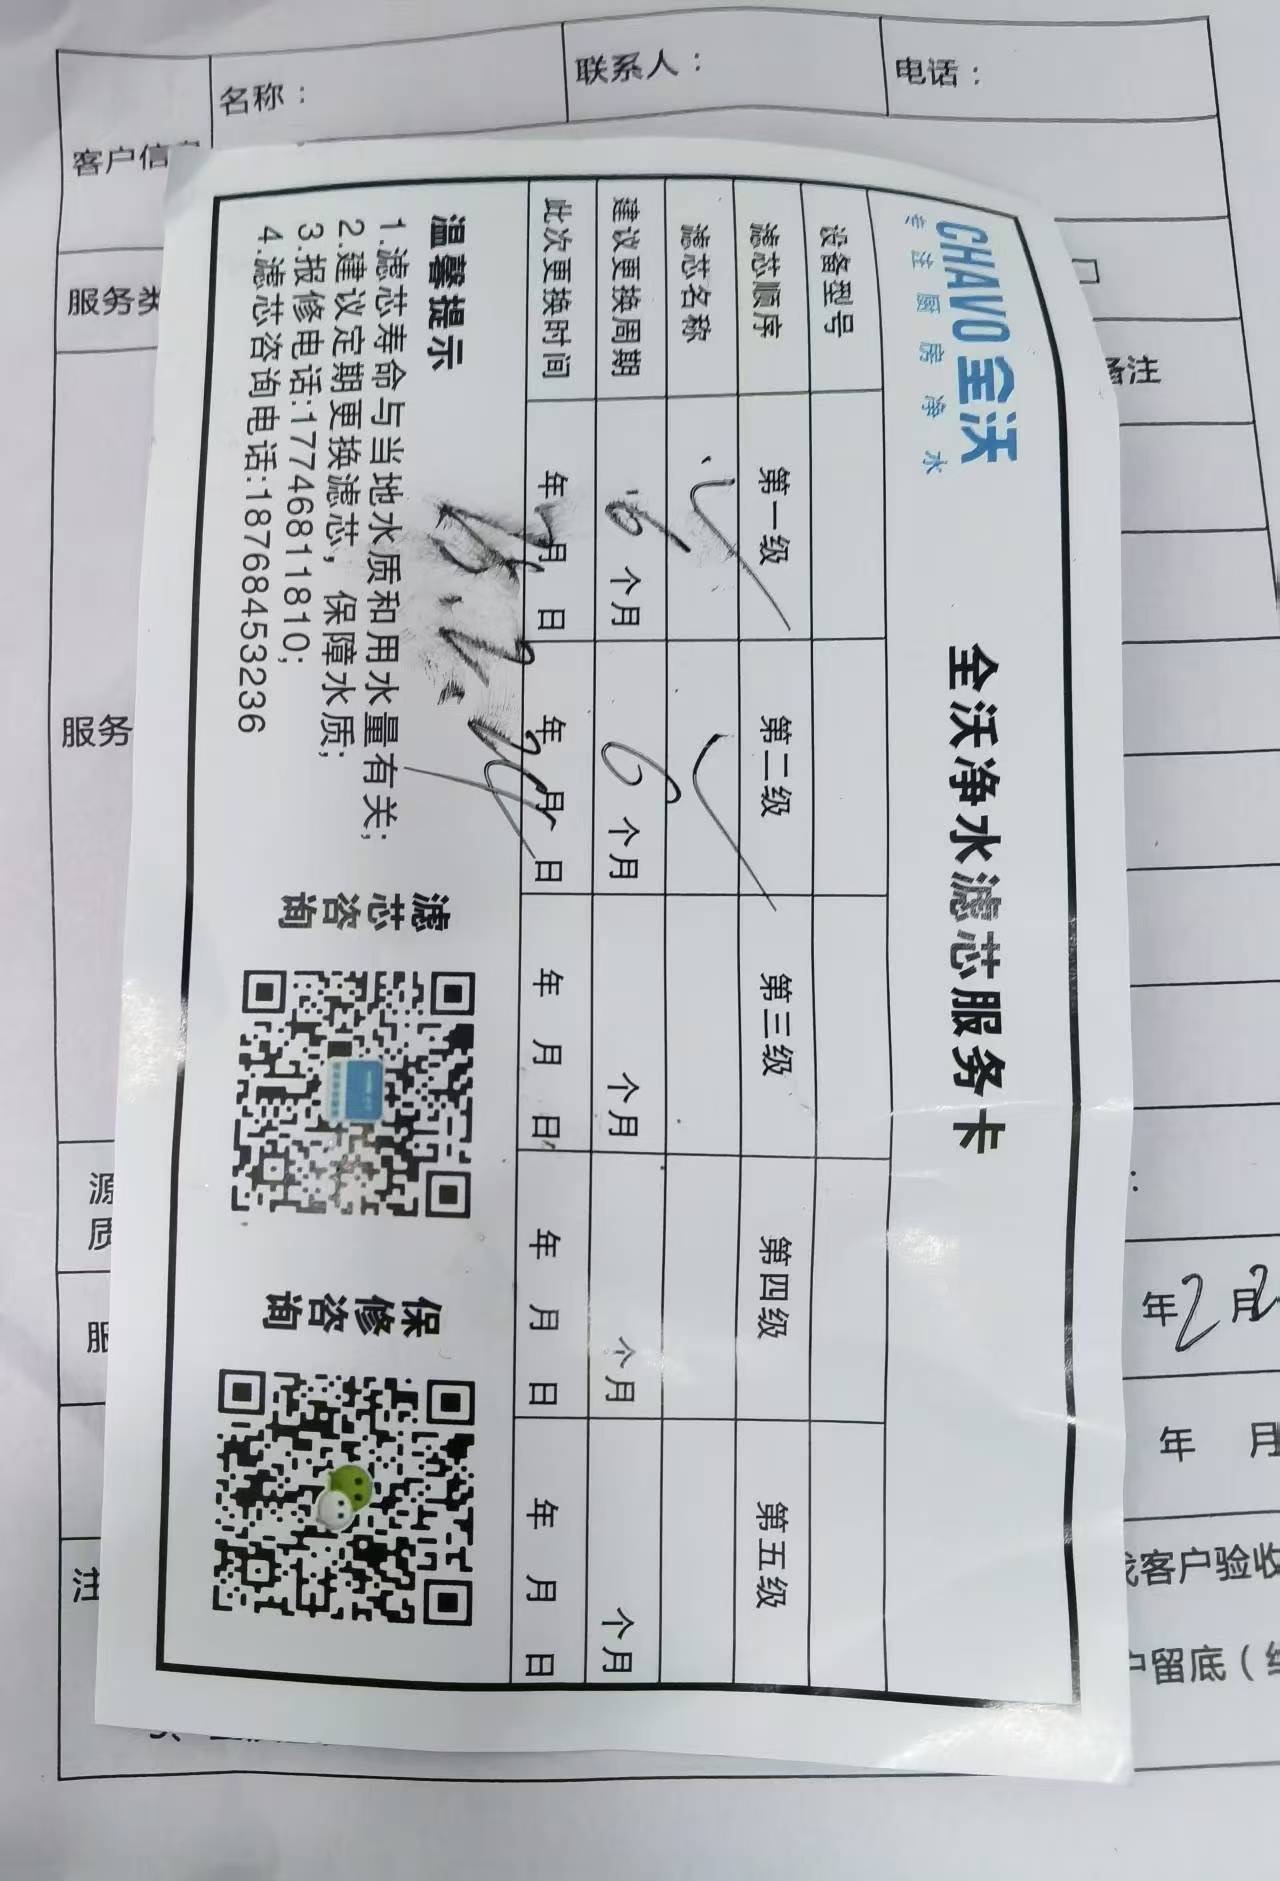 名称：
联系人：
电话：
客户信息
服务类
备注
服务
源
质
服
年2月2
年 月
注
找客户验收
户留底（
CHAVO全沃
专注厨房净水
全沃净水滤芯服务卡
设备型号
滤芯顺序 第一级 第二级 第三级 第四级 第五级
滤芯名称
建议更换周期 6个月 6个月 个月 个月 个月
此次更换时间 年 月 日 年 月 日 年 月 日 年 月 日 年 月 日
温馨提示
1.滤芯寿命与当地水质和用水量有关；
2.建议定期更换滤芯，保障水质；
3.报修电话:17746811810;
4.滤芯咨询电话:18768453236
滤芯咨询
保修咨询